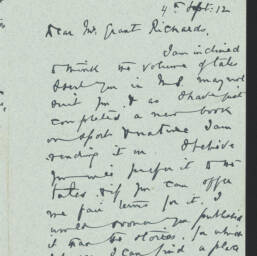 4th Sept: 12
Dear Mr. Grant Richards,
I am inclined
to think the volume of tales
I sent you in M.S. may not
suit you & as I have just
completed a new book
on sport & nature I am
sending it in. I believe
you will prefer it to the
tales & if you can offer
me fair terms for it, I
would you publish
it than the stories, for which
I can find a place